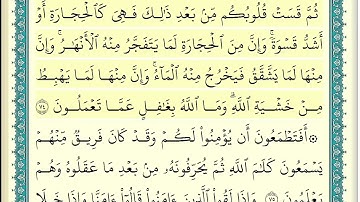 ثُمَّ قَسَتْ قُلُوبُكُم مِّنۢ بَعْدِ ذَٰلِكَ فَهِىَ كَٱلْحِجَارَةِ أَوْ
أَشَدُّ قَسْوَةً ۚ وَإِنَّ مِنَ ٱلْحِجَارَةِ لَمَا يَتَفَجَّرُ مِنْهُ ٱلْأَنْهَٰرُ ۚ وَإِنَّ
مِنْهَا لَمَا يَشَّقَّقُ فَيَخْرُجُ مِنْهُ ٱلْمَآءُ ۚ وَإِنَّ مِنْهَا لَمَا يَهْبِطُ
مِنْ خَشْيَةِ ٱللَّهِ ۗ وَمَا ٱللَّهُ بِغَٰفِلٍ عَمَّا تَعْمَلُونَ ٧٤
۞ أَفَتَطْمَعُونَ أَن يُؤْمِنُوا۟ لَكُمْ وَقَدْ كَانَ فَرِيقٌ مِّنْهُمْ
يَسْمَعُونَ كَلَٰمَ ٱللَّهِ ثُمَّ يُحَرِّفُونَهُۥ مِنۢ بَعْدِ مَا عَقَلُوهُ وَهُمْ
يَعْلَمُونَ ٧٥ وَإِذَا لَقُوا۟ ٱلَّذِينَ ءَامَنُوا۟ قَالُوٓا۟ ءَامَنَّا وَإِذَا خَلَا